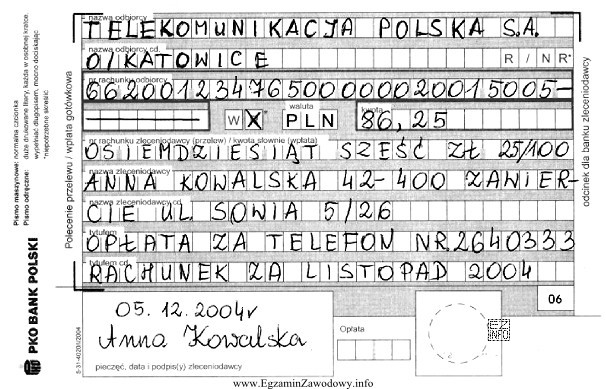 nazwa odbiorcy
TELEKOMUNIKACJA POLSKA S.A.
nazwa odbiorcy cd.
O/KATOWICE R / NR*
nr rachunku odbiorcy
66200123476500000020015005-
W X* waluta PLN kwota 86,25
nr rachunku zleceniodawcy (przelew) / kwota słownie (wpłata)
OSIEMDZIESIĄT SZEŚĆ ZŁ 25/100
nazwa zleceniodawcy
ANNA KOWALSKA 42-400 ZAWIER-
nazwa zleceniodawcy cd.
CIE UL. SOWIA 5/26
tytułem
OPŁATA ZA TELEFON NR.2640333
tytułem cd.
RACHUNEK ZA LISTOPAD 2004
06
05.12.2004r
Anna Kowalska
pieczęć, data i podpis(y) zleceniodawcy
Opłata
EZ
INFO
Polecenie przelewu / wpłata gotówkowa
odcinek dla banku zleceniodawcy
Pismo maszynowe: normalna czcionka
Pismo odręczne: duże drukowane litery, każda w osobnej kratce.
wypełniać długopisem, mocno dociskając
*niepotrzebne skreślić
PKO BANK POLSKI
www.EgzaminZawodowy.info